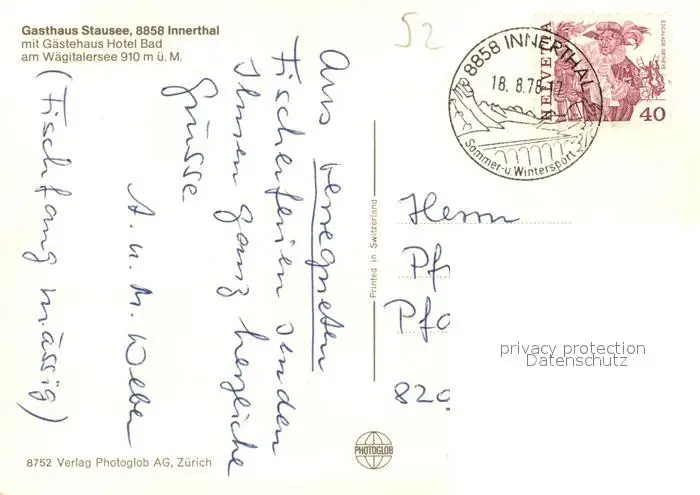 Gasthaus Stausee, 8858 Innerthal
mit Gästehaus Hotel Bad
am Wägitalersee 910 m ü. M.
52
8858 INNERTHAL
18.8.78-17
Sommer-u. Wintersport
HELVETIA
ESCALADE GENÈVE
40
Aus verregneten
Fischerferien senden
Ihnen ganz herzliche
Grüsse
A. u. M. Weber
(Fischfang mässig)
Printed in Switzerland
Herrn
Pf
Pfa
820
privacy protection
Datenschutz
PHOTOGLOB
8752 Verlag Photoglob AG, Zürich